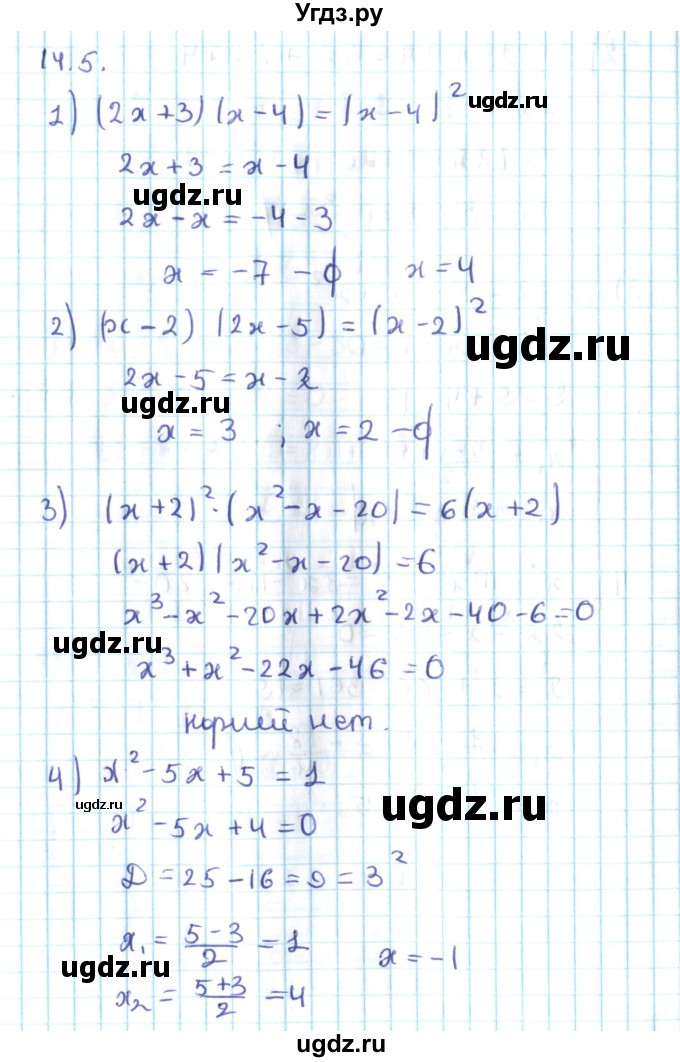 Угдз.ру
14.5.
1) (2x+3)(x-4)=(x-4)²
ugdz.ru
2x+3=x-4
ugdz.ru
2x-x=-4-3
x = -7 - ф x=4
2) (x-2)(2x-5)=(x-2)²
ugdz.ru
2x-5=x-2
ugdz.ru
x = 3 ; x=2 -ф
3) (x+2)²·(x²-x-20)=6(x+2)
(x+2)(x²-x-20)=6
x³-x²-20x+2x²-2x-40-6=0
ugdz.ru
x³+x²-22x-46=0
корней нет.
4) x²-5x+5=1
ugdz.ru
ugdz.ru
x²-5x+4=0
D=25-16=9=3²
x₁ = (5-3)/2 = 1 x=-1
ugdz.ru
x₂ = (5+3)/2 = 4
ugdz.ru